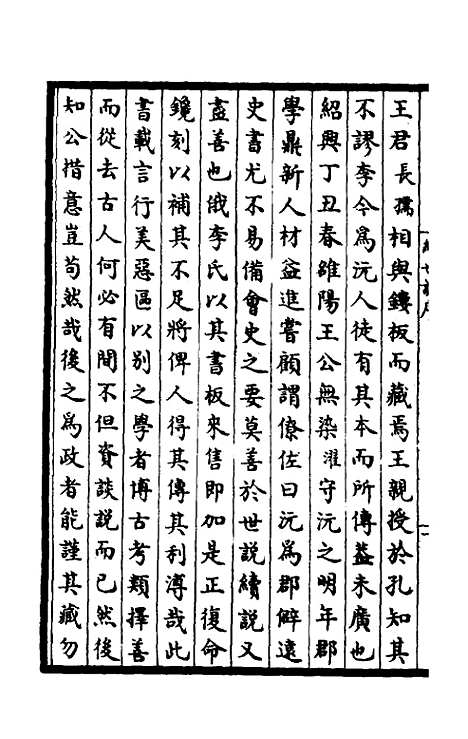 王君長孺相與鏤板而藏焉王親授於孔知其
不謬李今爲沅人徒有其本而所傳葢未廣也
紹興丁丑春雖陽王公無染濯守沅之明年郡
學鼎新人材益進嘗顧謂僚佐曰沅爲郡僻遠
史書尤不易備會史之要莫善於世說續說又
盡善也俄李氏以其書板來售即加是正復命
鑱刻以補其不足將俾人得其傳其利溥哉此
書載言行美惡區以別之學者博古考類擇善
而從去古人何必有間不但資談說而已然後
知公措意豈苟然哉後之爲政者能謹其藏勿